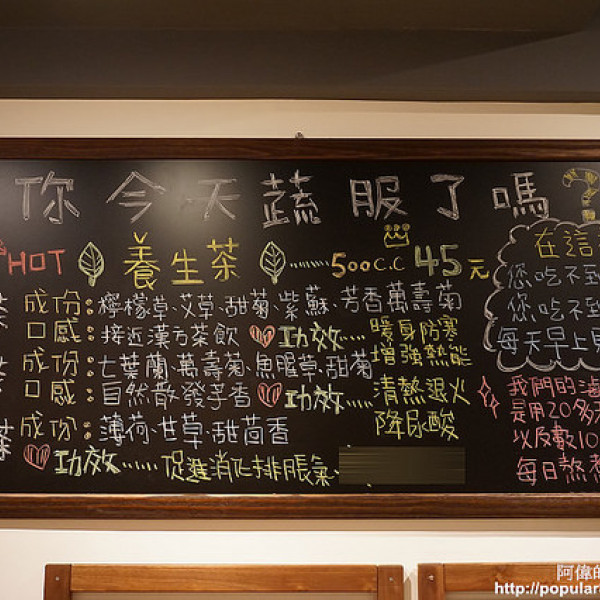 你今天蔬服了嗎?
HOT 養生茶 ······500c.c 45元
茶 成份:檸檬草、艾草、甜菊、紫蘇、芳香萬壽菊
口感:接近漢方茶飲 功效······暖身防寒 增強熱能
茶 成份:七葉蘭、萬壽菊、魚腥草、甜菊
口感:自然散發芋香 功效······清熱退火 降尿酸
茶 成份:薄荷、甘草、甜茴香
功效······促進消化排脹氣、
在這
您吃不到
您吃不到
每天早上
我們的滷
長用20多
以及數10
每日熬煮
阿偉的
http://popular